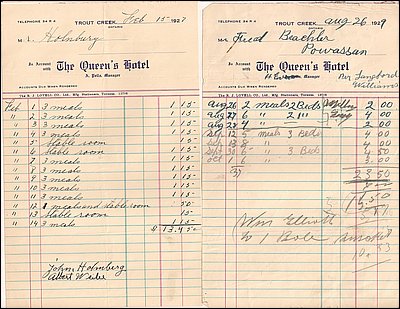 TELEPHONE 84 R-4
TROUT CREEK, Feb 15 1927
ONTARIO
M L. Holmburg
In Account with The Queen's Hotel
A. Polls, Manager
ACCOUNTS DUE WHEN RENDERED
The R. J. LOVELL CO., Ltd., Mfg Stationers, Toronto.
Feb 1 3 meals 1 15
" 2 3 meals 1 15
" 3 3 meals 1 15
" 4 3 meals 1 15
" 5 stable room
" 6 stable room
" 7 3 meals 1 15
" 8 3 meals 1 15
" 9 3 meals 1 15
" 10 3 meals 1 15
" 11 3 meals 1 15
" 12 1 meals and stable room 50
" 13 stable room
" 14 3 meals 1 15
John Holmberg
Albert
TELEPHONE 84 R-4
TROUT CREEK, Aug 26 1929
ONTARIO
M Fread Baechler
Powassan
In Account with The Queen's Hotel
Manager
Per Langford
Williams
ACCOUNTS DUE WHEN RENDERED
The R. J. LOVELL CO., Ltd., Mfg Stationers, Toronto.
Aug 26 2 meals 2 Beds 2 00
Aug 27 6 " 2 " 4 00
Aug 28 4 " 2 00
Sep 12 5 meals 3 Beds 4 00
Sep 13 8 " 4 00
Sep 30 5 " 3 Beds
Oct 1 6 " 3 00
37
23 50
8 00
15 50
Wm Elliott
to 1 Bole